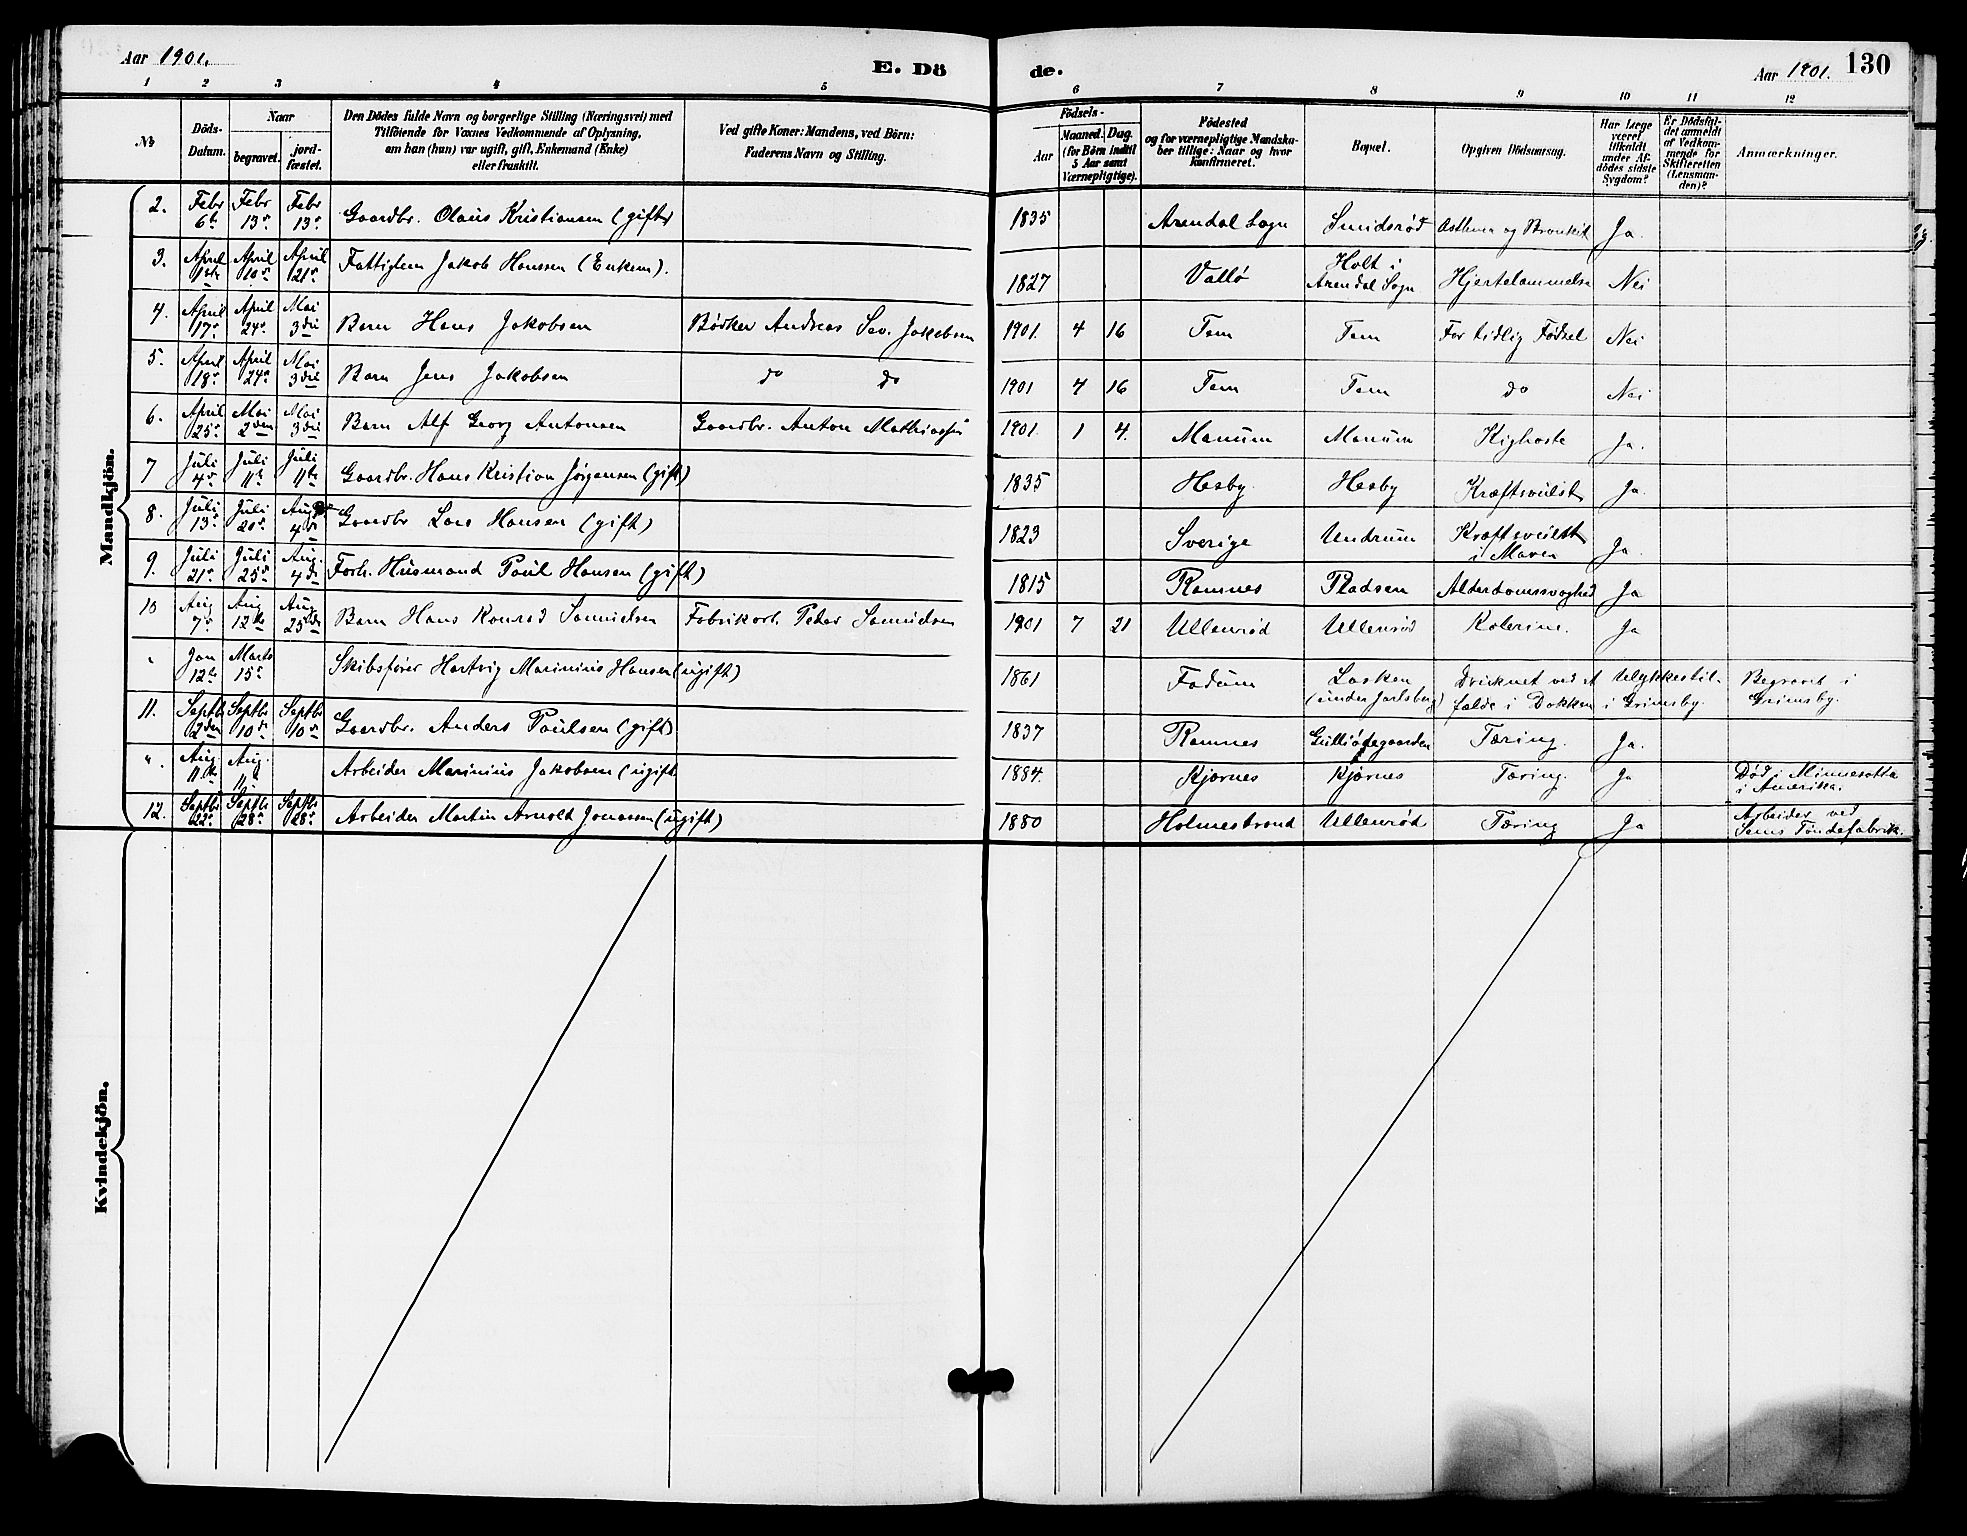 Aar 1901.
E. Dö
de.
Aar 1901. 130
1 2 3 4 5 6 7 8 9 10 11 12
No
Döds-
Datum.
Naar
begravet.
jord-
fæstet.
Den Dödes fulde Navn og borgerlige Stilling (Næringsvei) med
Tilföiende for Voxnes Vedkommende af Oplysning,
om han (hun) var ugift, gift, Enkemand (Enke)
eller fraskilt.
Ved gifte Koner: Mandens, ved Börn:
Faderens Navn og Stilling.
Födsels-
Aar
Maaned. Dag.
(for Börn indtil
5 Aar samt
Værnepligtige).
Födested
og for værnepligtige Mandska-
ber tillige: Naar og hvor
konfirmeret.
Bopæl.
Opgiven Dödsaarsag.
Har Læge
været
tilkaldt
under Af-
dödes sidste
Sygdom?
Er Dödsfal-
det anmeldt
af Vedkom-
mende for
Skifteretten
(Lensman-
den)?
Anmærkninger.
Mandkjön.
2. Febr 6te Febr 13de Febr 13de Gaardbr. Olaus Kristiansen (gift) 1835 Arendal Sogn Smidsrød Asthma og Bronkit Ja.
3. April 1ste April 10de April 21de Fattiglem Jakob Hanssen (Enkem). 1827 Vallö Holt i Arendal Sogn Hjertelammelse Nei
4. April 17de April 24de Mai 3die Barn Hans Jakobsen Bödker Andreas Sev. Jakobsen 1901. 4 16 Tem Tem For tidlig Födsel Nei
5. April 18de April 24de Mai 3die Barn Jens Jakobsen do do 1901 4 16 Tem Tem do Nei
6. April 25de Mai 2den Mai 3die Barn Alf Georg Antonsen Gaardbr. Anton Mathiassen 1901. 1 4. Manum Manum Kighoste Ja.
7 Juli 4de Juli 11te Juli 11te Gaardbr. Hans Kristian Jørgensen (gift) 1835 Hesby. Hesby Kræftsvulst Ja.
8. Juli 13de Juli 20de Aug 4de Gaardbr Lars Hansen (gift) 1823 Sverige Undrum Kræftsvulst i Maven Ja.
9. Juli 21de Juli 25de Aug. 4de Forh. Husmand Paul Hansen (gift) 1815 Ramnes Pladsen Alderdomssvaghed Ja
10 Aug 7de Aug 12te Aug 25de Barn Hans Konrad Samuelsen Fabrikarb. Peder Samuelsen 1901 7 21 Ullenrød Ullenrød Kolerine. Ja
" Jan 12te Marts 15de Skibsfører Hartvig Marinius Hansen (ugift) 1861 Fadum Lasken (under Jarlsberg) Druknet ved et Ulykkestil-
fælde i Dokken i Grimsby. Begravet i Grimsby.
11. Septbr 2den Septbr 10de Septbr 10de Gaardbr. Anders Paulsen (gift) 1837 Ramnes Tæring. Ja.
". Aug. 11te Aug. Arbeider Marinius Jakobsen (ugift 1884. Kjørnes Kjørnes Tæring. Ja Død i Minnesotta
i Amerika.
12. Septbr 22de Septbr 28de Septbr 28de Arbeider Martin Arnolt Jonassen (ugift) 1880 Holmestrand Ullenrød Tæring Ja Arbeider ved
Sems Töndefabrik.
Kvindekjön.